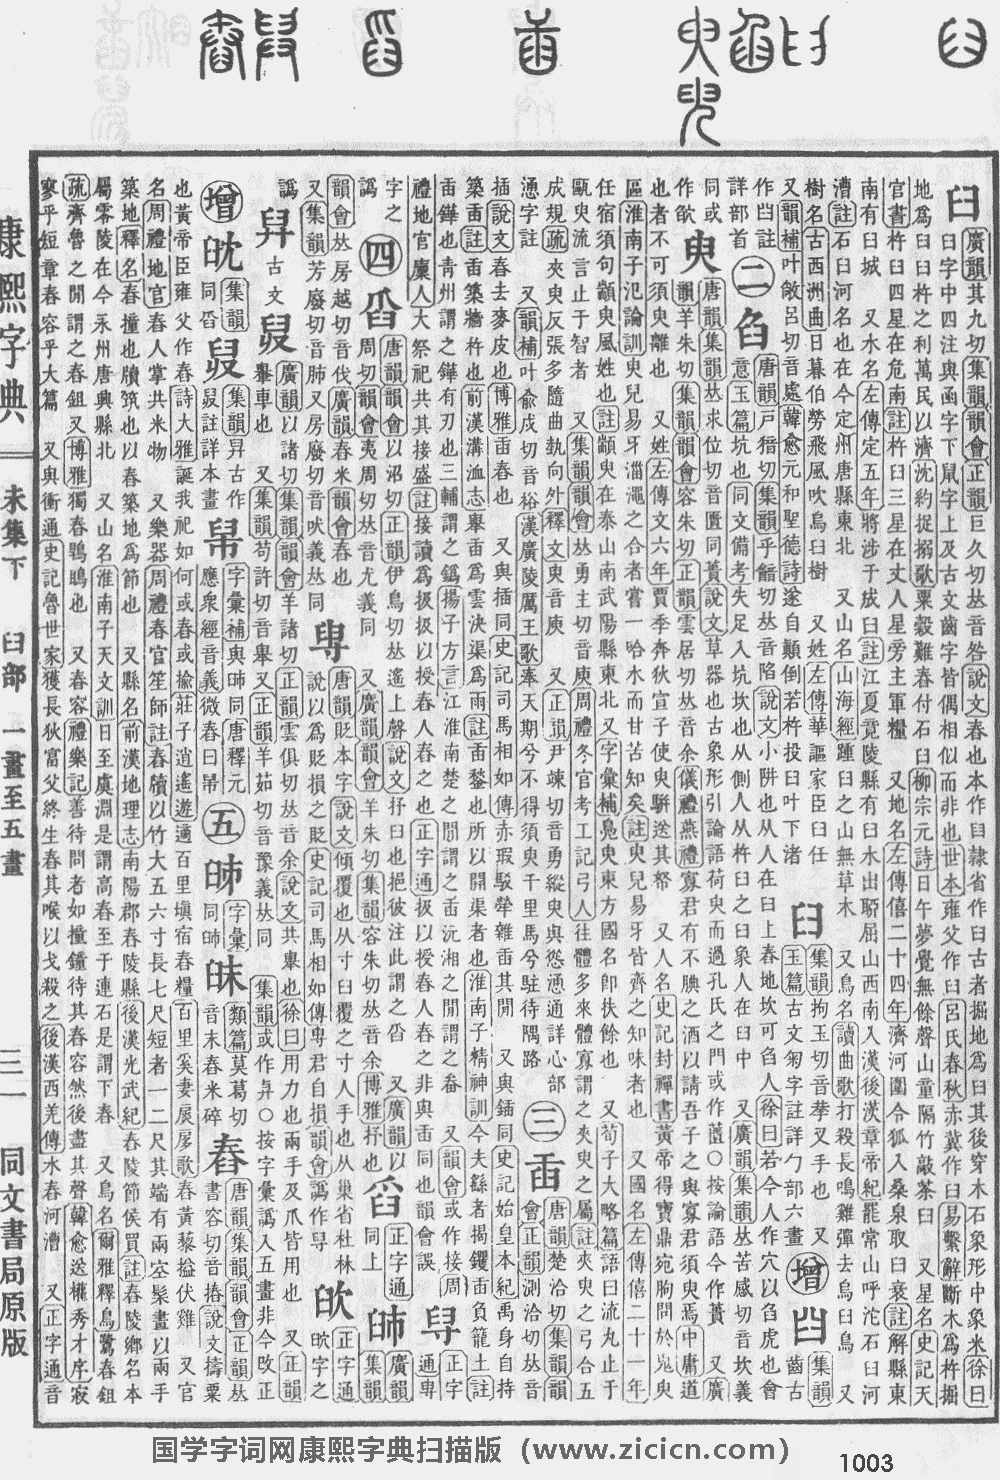 臼廣韻其九切集韻韻會正韻巨久切𠀤音咎說文舂也本作臼隸省作臼古者掘地爲臼其後穿木石象形中象米徐曰
臼字中四注與函字下鼠字上及古文齒字皆偶相似而非也世本雍父作臼呂氏春秋赤冀作臼易繫辭斷木爲杵掘
地爲臼臼杵之利萬民以濟沈約捉搦歌粟穀難舂付石臼柳宗元詩日午夢覺無餘聲山童隔竹敲茶臼 又星名史記天
官書杵臼四星在危南註杵臼三星在丈人星旁主軍糧 又地名左傳僖二十四年濟河圍令狐入桑泉取臼衰註解縣東
南有臼城 又水名左傳定五年將涉于成臼註江夏竟陵縣有臼水出聊屈山西南入漢後漢章帝紀罷常山呼沱石臼河
漕註石臼河名也在今定州唐縣東北 又山名山海經踵臼之山無草木 又鳥名讀曲歌打殺長鳴雞彈去烏臼鳥 又
樹名古西洲曲日暮伯勞飛風吹烏臼樹 又姓左傳華貙家臣臼任
又韻補叶敞呂切音處韓愈元和聖德詩遂自顛倒若杵投臼叶下渚
𦥑集韻拘玉切 叉手也 又
玉篇古文匊字註詳勹部六畫
增 集韻齒古
作 註詳部首
二 臽唐韻戸猪切集韻乎韽切𠀤音陷說文小阱也从人在臼上舂地坎可臽人徐曰若今人作穴以臽虎也會
意玉篇坑也同文備考失足入坑坎也从側人从杵臼之臼象人在臼中 又廣韻集韻𠀤苦感切音坎義
同或
臾唐韻集韻𠀤求位切音匱同蕢說文草器也古象形引論語荷臾而過孔氏之門或作 ○按論語今作蕢 又廣
韻羊朱切集韻韻會容朱切正韻雲居切𠀤音余儀禮燕禮寡君有不腆之酒以請吾子之與寡君須臾焉中庸道
也者不可須臾離也 又姓左傳文六年賈季奔狄宣子使臾騈送其帑 又人名史記封禪書黃帝得寶鼎宛朐問於鬼臾
區淮南子氾論訓臾兒易牙淄澠之合者嘗一哈水而甘苦知矣註臾兒易牙皆齊之知味者也 又國名左傳僖二十一年
任宿須句顓臾風姓也註顓臾在泰山南武陽縣東北 又字彙補 臾東方國名卽扶餘也 又荀子大略篇語曰流丸止于
甌臾流言止于智者 又集韻韻會𠀤勇主切音庾周禮冬官考工記弓人往體多來體寡謂之夾臾之屬註夾臾之弓合五
成規疏夾臾反張多隨曲執向外釋文臾音庾 又正韻尹竦切音勇縱臾與慫慂通詳心部
慂字註 又韻補叶兪戍切音裕漢廣陵厲王歌奉天期兮不得須臾千里馬兮駐待隅路
三 臿唐韻楚洽切集韻韻會正韻測洽切𠀤音
插說文舂去麥皮也博雅臿舂也 又與插同史記司馬相如傳赤瑕駁犖雜臿其閒 又與鍤同史記始皇本紀禹身自持
築臿註臿築牆杵也前漢溝洫志舉臿爲雲決渠爲雨註臿鍫也所以開渠者也淮南子精神訓今夫繇者揭钁臿負籠土註
臿鏵也靑州謂之鏵有刃也三輔謂之 揚子方言江淮南楚之閒謂之臿沅湘之閒謂之畚 又韻會或作接周
禮地官廩人大祭祀共其接盛註接讀爲扱扱以授舂人舂之也正字通扱以授舂人舂之非與臿同也韻會誤
正字通專字之譌
四 舀唐韻韻會以沼切正韻伊鳥切𠀤遙上聲說文抒臼也挹彼注此謂之舀 又廣韻以
周切韻會夷周切𠀤音尤義同 又廣韻韻會羊朱切集韻容朱切𠀤音余博雅抒也
正字通同上
廣韻集韻
韻會𠀤房越切音伐廣韻舂米韻會舂也
又集韻芳廢切音肺又房廢切音吠義𠀤同
唐韻貶本字說文傾覆也从寸臼覆之寸人手也从巢省杜林
說以爲貶損之貶史記司馬相如傳 君自損韻會譌作
正字通 字之
譌
舁古文
廣韻以諸切集韻韻會羊諸切正韻雲俱切𠀤音余說文共舉也徐曰用力也兩手及爪皆用也 又正韻
舉車也 又集韻苟許切音舉 又正韻羊茹切音豫義𠀤同 集韻或作 ○按字彙譌入五畫非今改正
增 集韻同舀
集韻舁古作 註詳本畫
字彙補與 同唐釋元應衆經音義微舂曰
五 字彙同
類篇莫葛切音末舂米碎
舂唐韻集韻韻會正韻𠀤書容切音摏說文擣粟
也黃帝臣雍父作舂詩大雅誕我祀如何或舂或揄莊子逍遙遊適百里塡宿舂糧百里奚妻扊扅歌舂黃藜搤伏雞 又官
名周禮地官舂人掌共米物 又樂器周禮春官笙師註舂牘以竹大五六寸長七尺短者一二尺其端有兩空髤畫以兩手
築地釋名舂撞也牘筑也以舂築地爲節也 又縣名前漢地理志南陽郡舂陵縣後漢光武紀舂陵節侯買註舂陵鄕名本
屬零陵在今永州唐興縣北 又山名淮南子天文訓日至虞淵是謂高舂至于連石是謂下舂 又鳥名爾雅釋鳥鷺舂鉏
疏齊魯之閒謂之舂鉏又博雅獨舂鶡鴠也 又舂容禮樂記善待問者如撞鐘待其舂容然後盡其聲韓愈送權秀才序寂
寥乎短章舂容乎大篇 又與衝通史記魯世家獲長狄富父終甥舂其喉以戈殺之後漢西羌傳水舂河漕 又正字通音
康熙字典
未集下
臼部
一畫至五畫
同文書局原版
国学字词网康熙字典扫描版（www.zicicn.com）
1003